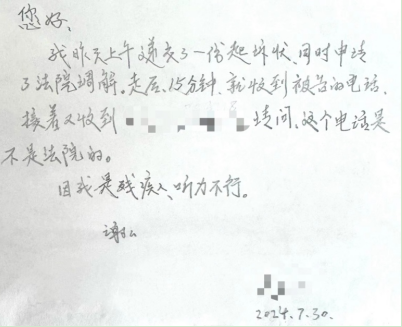 您好:
我昨天上午递交了一份起诉状,同时申请
了法院调解。走后、15分钟,就收到被告的电话,
接着又收到 请问,这个电话是
不是法院的。
因我是残疾人、听力不行。
谢谢
2024.7.30.